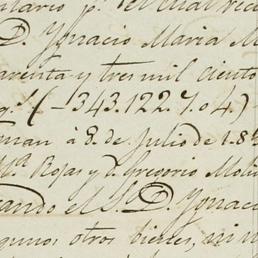 D. Ygnacio Maria M
arenta y tres mil ciento
(-343.122.7.o4.)-
man á 8. de Julio de 18
Mª. Rojas y D. Gregorio Mol
ando el Sº. D. Ygnaci
gunos otros bienes, mi n